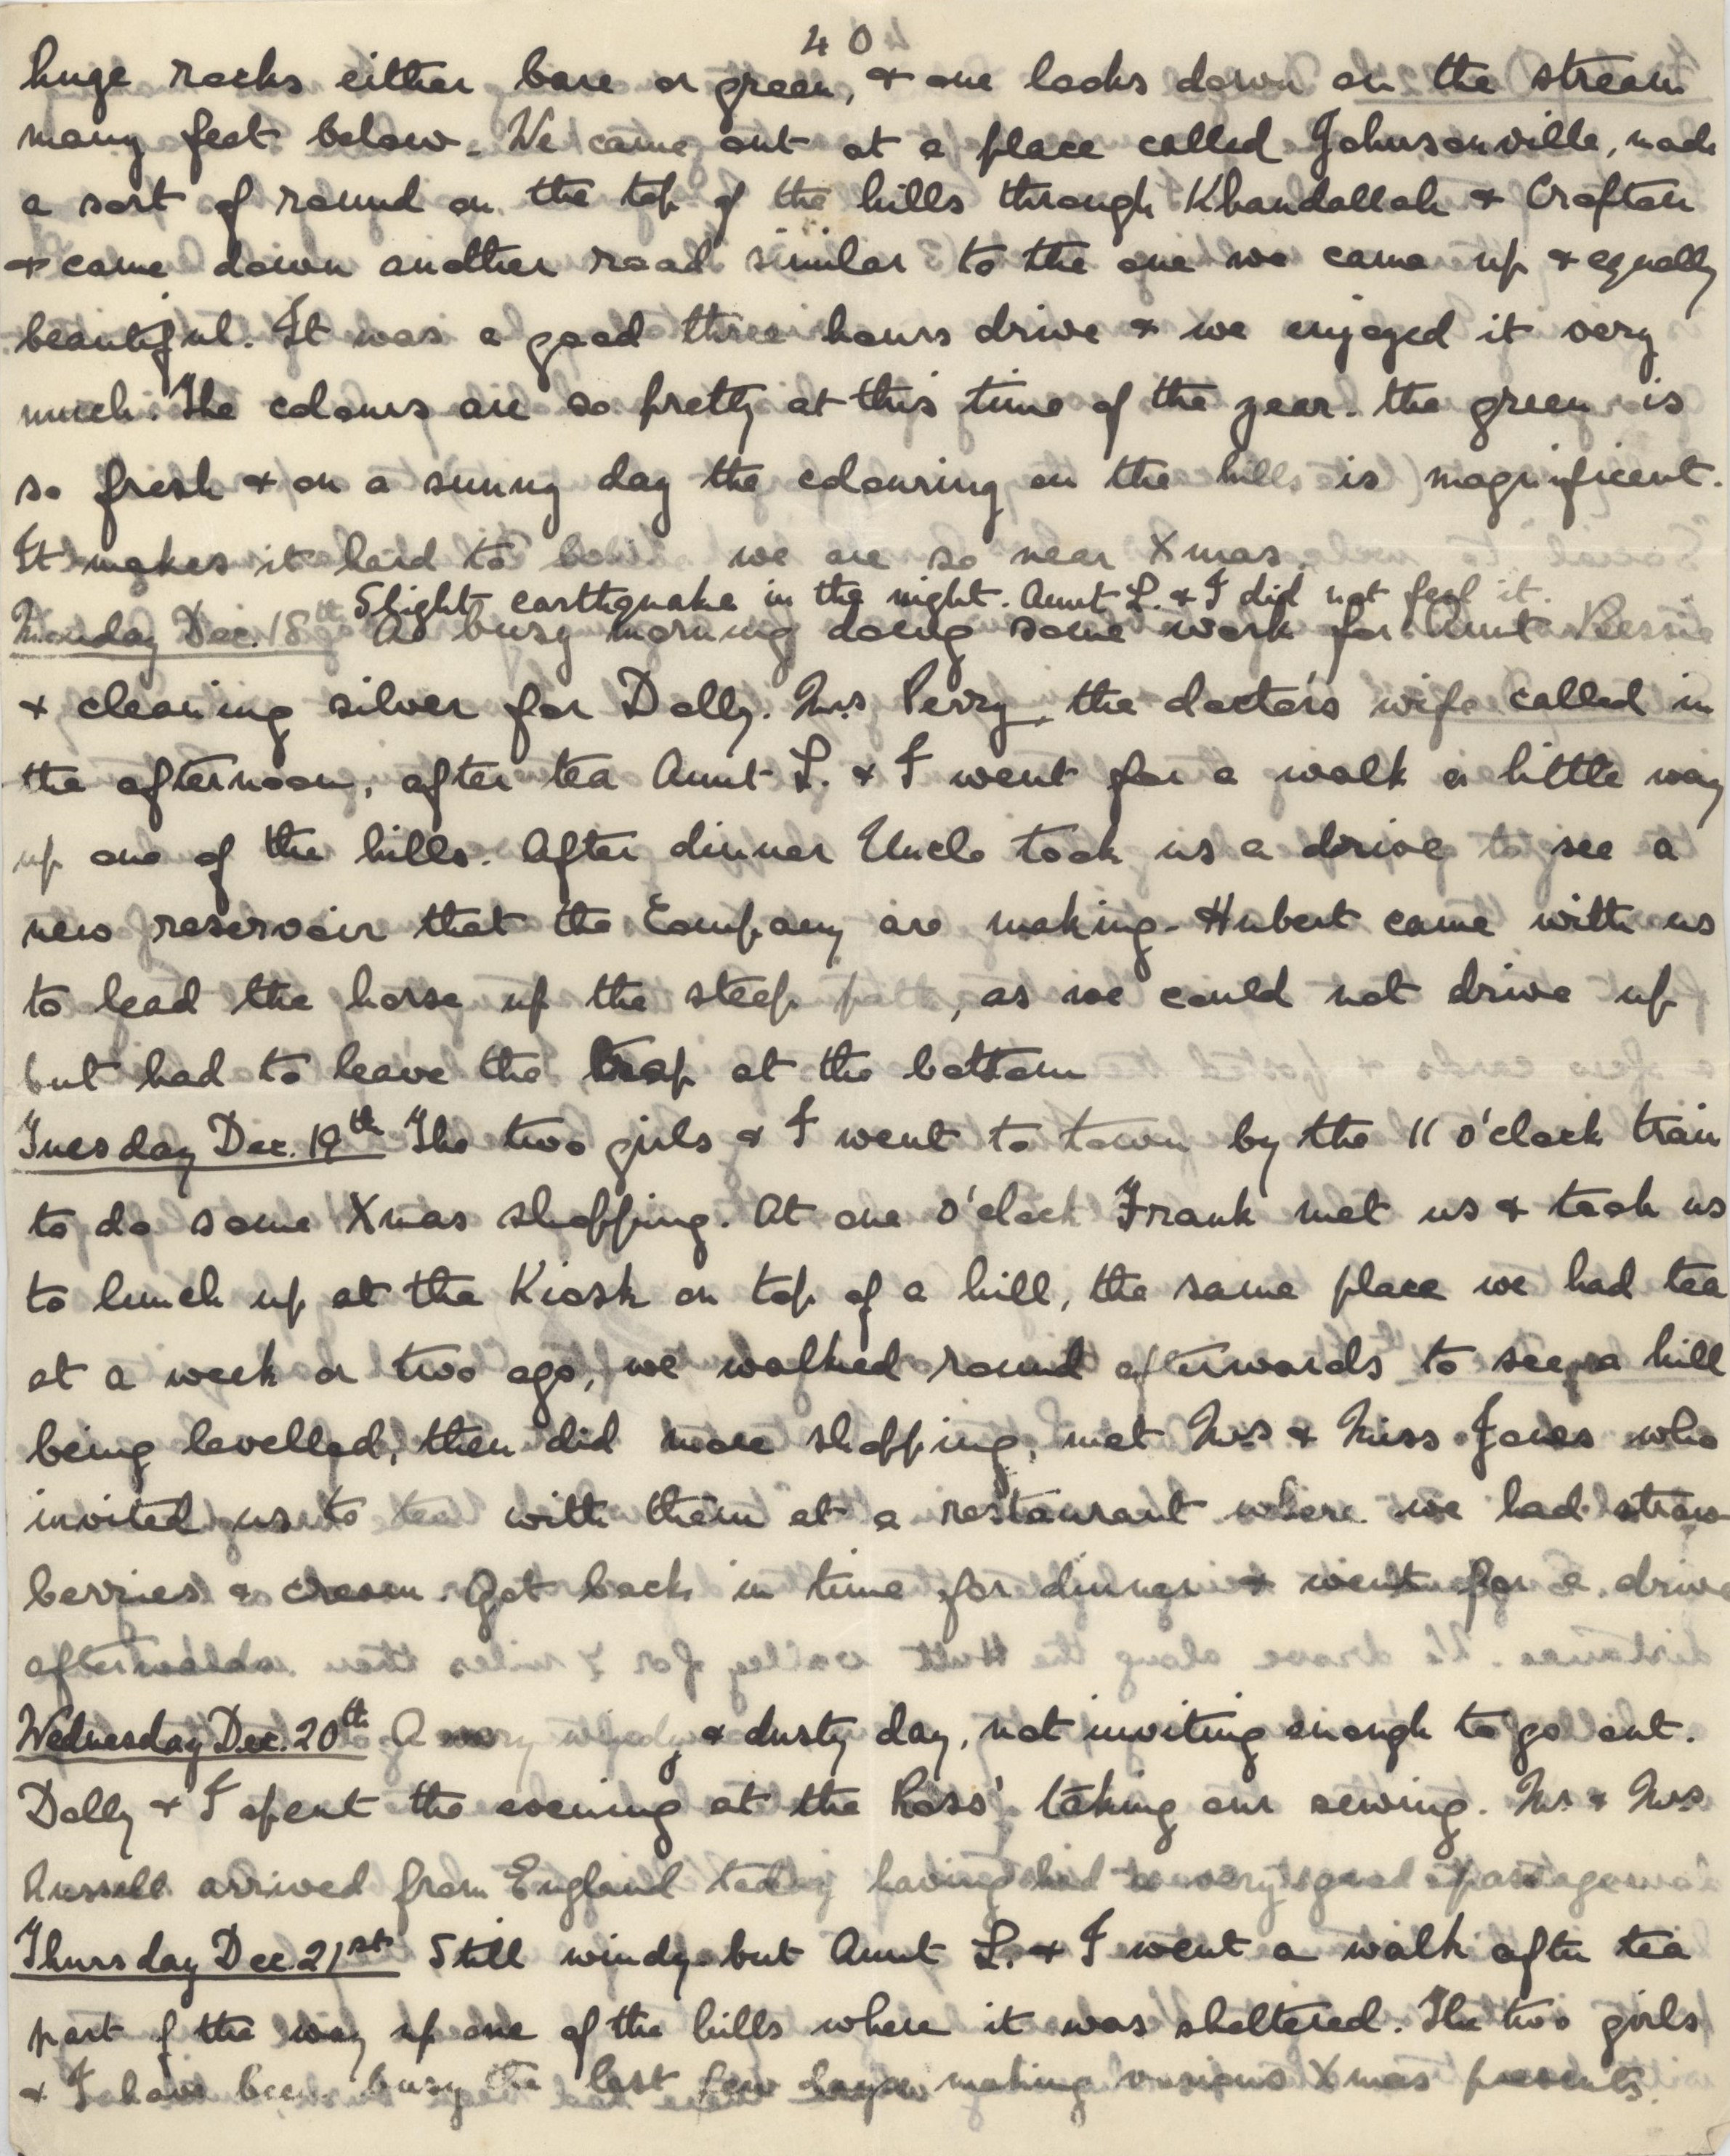 40
huge rocks either bare or green, & one looks down on the stream
many feet below. We came out at a place called Johnsonville, made
a sort of round on the top of the hills through Khandallah & Crofton
& came down another road similar to the one we came up & equally
beautiful. It was a good three hours drive & we enjoyed it very
much. The colours are so pretty at this time of the year. the green is
so fresh & on a sunny day the colouring on the hills is magnificent.
It makes it hard to we are so near Xmas.
Slight earthquake in the night. Aunt L. & I did not feel it.
Monday Dec. 18th A busy morning doing some work for Aunt Bessie
& cleaning silver for Dolly. Mrs Perry, the doctor's wife called in
the afternoon, after tea Aunt L. & I went for a walk a little way
up one of the hills. After dinner Uncle took us a drive to see a
new reservoir that the Company are making. Hubert came with us
to lead the horse up the steep path, as we could not drive up
but had to leave the trap at the bottom
Tuesday Dec. 19th The two girls & I went to town by the 11 o'clock train
to do some Xmas shopping. At one o'clock Frank met us & took us
to lunch up at the Kiosk on top of a hill, the same place we had tea
at a week or two ago, we walked round afterwards to see a hill
being levelled, then did more shopping, met Mrs & Miss Jones who
invited us to tea with them at a restaurant where we had straw
berries & cream. Got back in time for dinner & went for a drive
afterwards.
Wednesday Dec. 20th A very windy & dusty day, not inviting enough to go out.
Dolly & I spent the evening at the Ross' taking our sewing. Mr. & Mrs
Russell arrived from England today having had a very good passage
Thursday Dec. 21st Still windy but Aunt L. & I went a walk after tea
part of the way up one of the hills where it was sheltered. The two girls
& I have been busy the last few days making various Xmas presents.